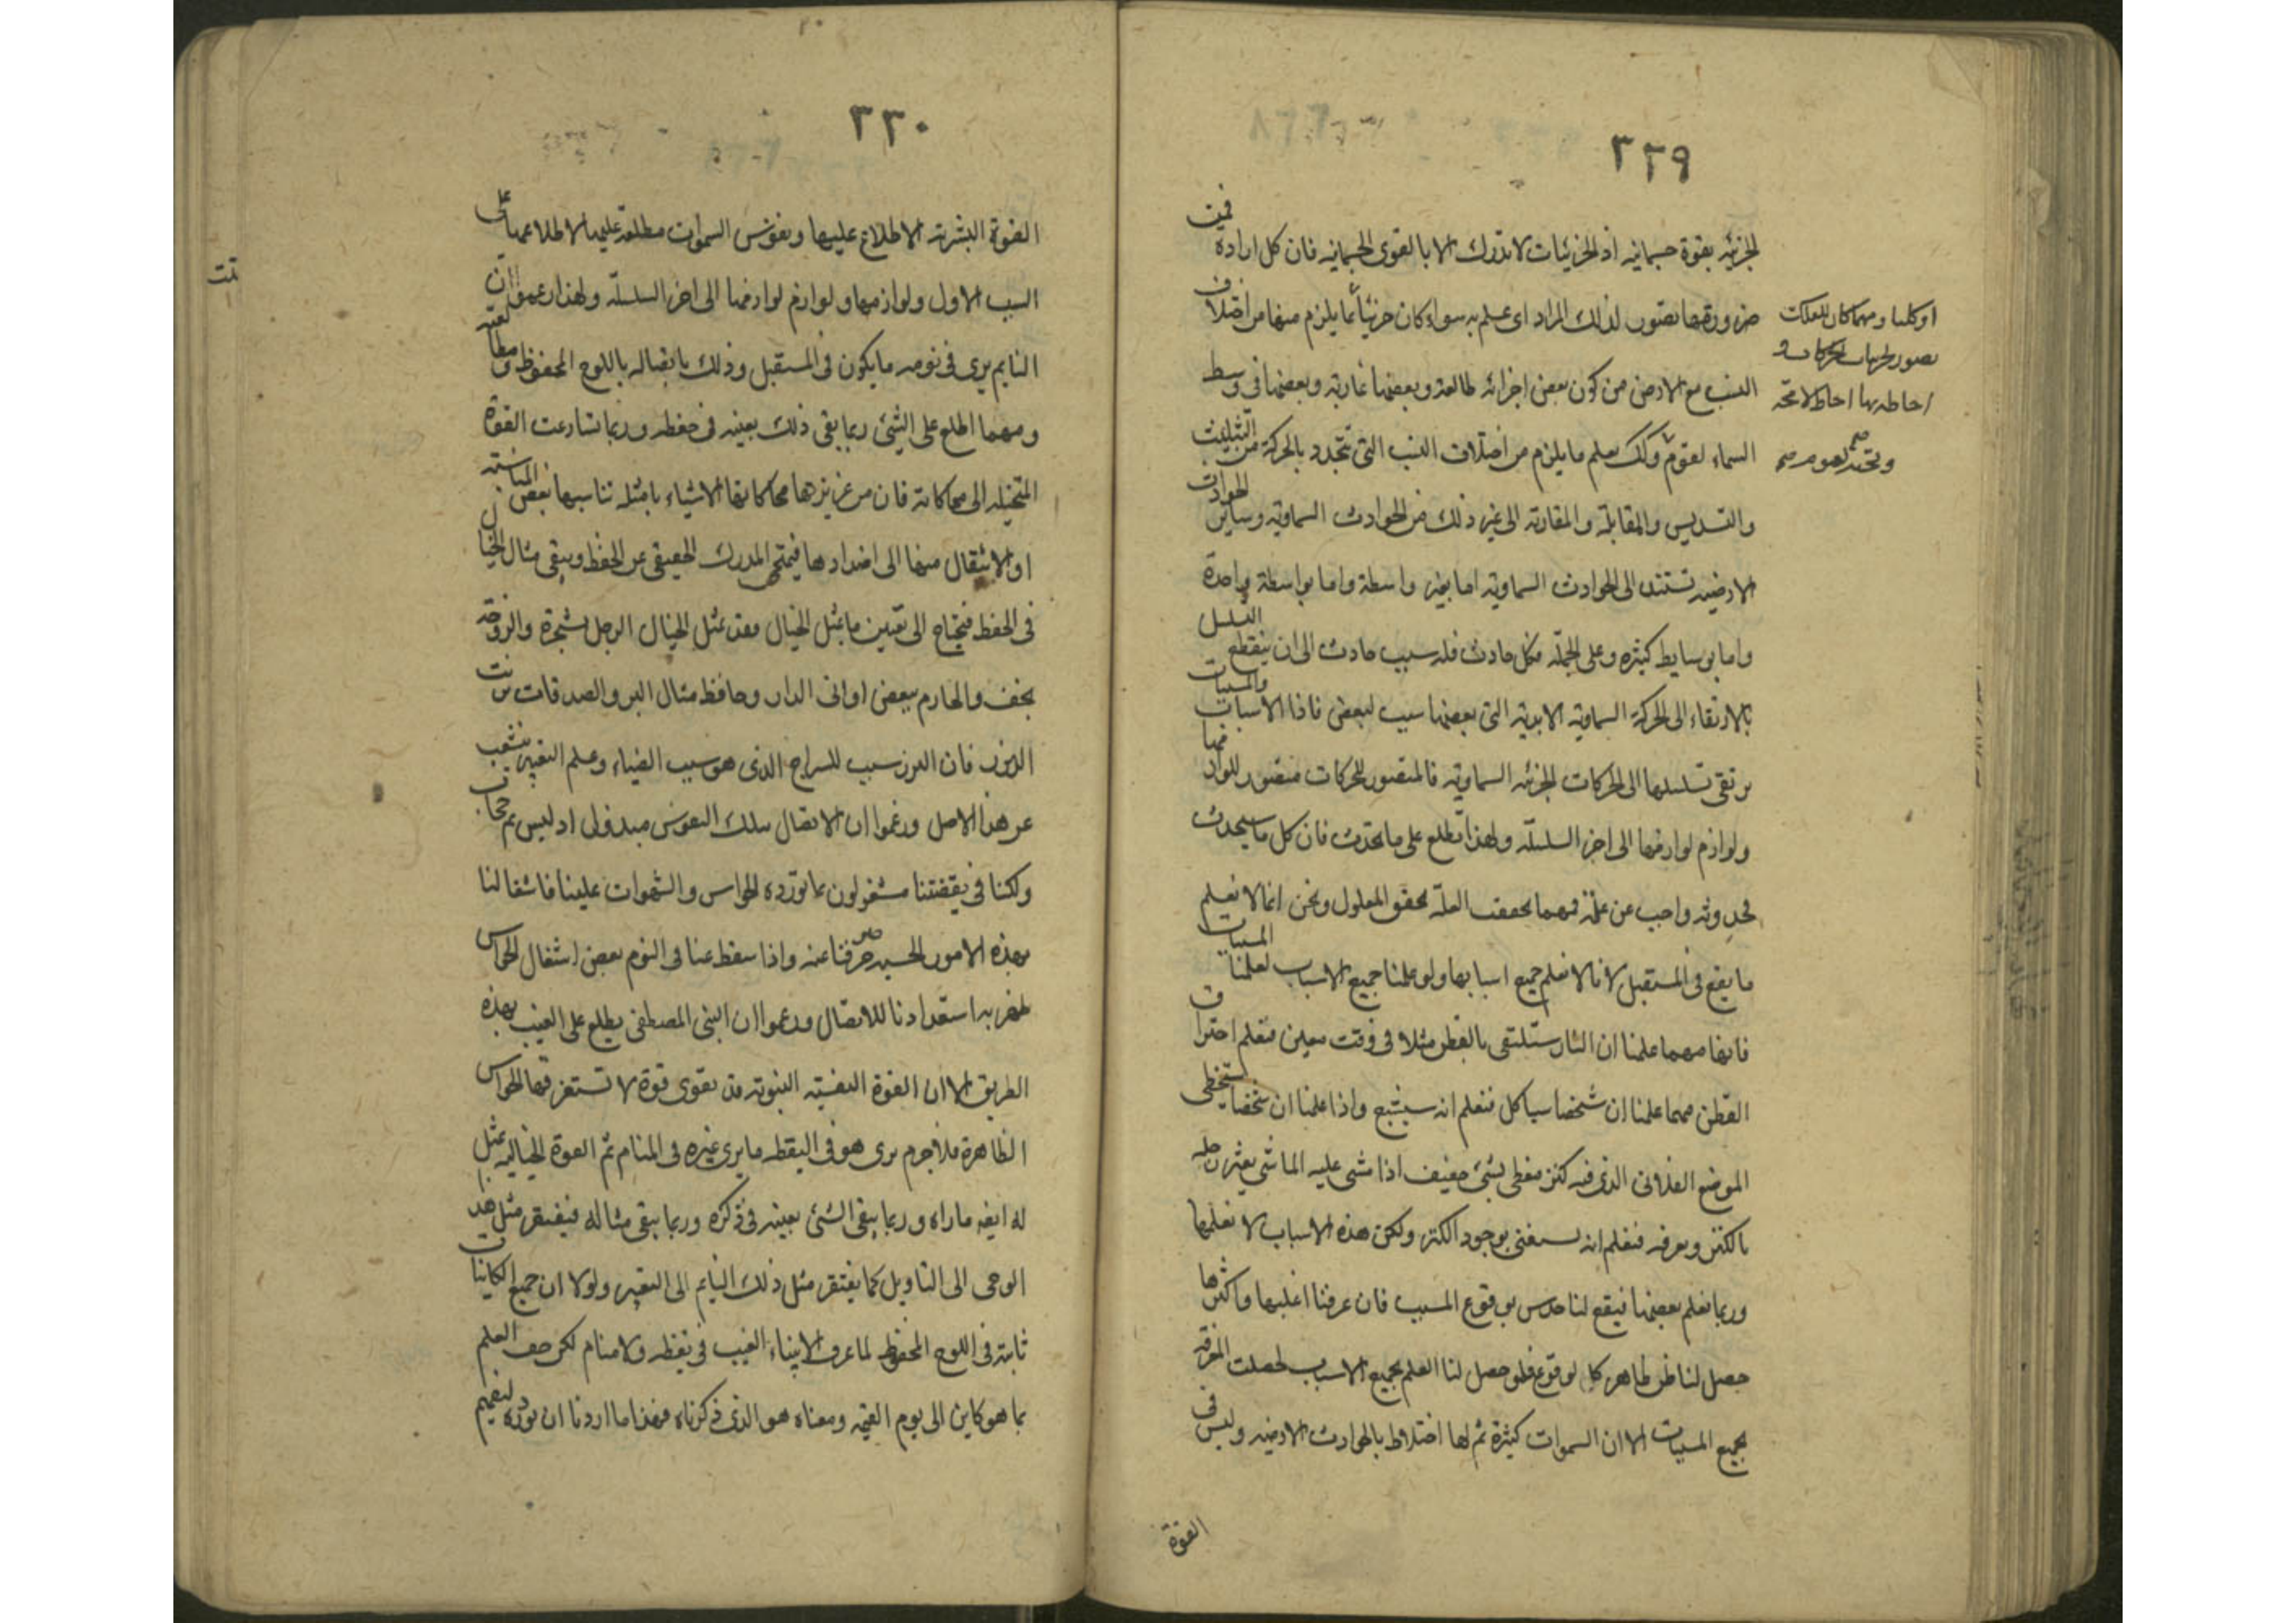 ٣٢٩
الجزئيه بقوة جسمانيه اذ الجزئيات لا تدرك الا بالقوى الجسمانيه فان كل اراده فمن
ضرورتها تصور لذلك المراد اى علم به سواء كان جزئياً مما يلزم منها من اختلاف
النسب مع الارض من كون بعض اجزائه طالعة وبعضها غاربة وبعضها فى وسط
السماء لقوم وكذلك يعلم ما يلزم من اختلاف النسب التى تتجدد بالحركة من التثليث
والتسديس والمقابلة والمقارنة الى غير ذلك من الحوادث السماوية وساير الحوادث
الارضيه تستند الى الحوادث السماوية اما بغير واسطة واما بواسطة واحدة
واما بوسايط كثيره وعلى الجملة فكل حادث فله سبب حادث الى ان ينقطع التسلسل
بالارتقاء الى الحركة السماوية الابدية التى بعضها سبب لبعض فاذا الاسباب والمسببات
يرتقى تسلسلها الى الحركات الجزئيه السماوية فالمتصور للحركات متصور للوازمها
ولوازم لوازمها الى اخر السلسلة ولهذا تطلع على ما يحدث فان كل ما سيحدث
فحدوثه واجب عن علته فمهما تحققت العلة تحقق المعلول ونحن انما لا نعلم
ما يقع فى المستقبل لانا لا نعلم جميع اسبابها ولو علمنا جميع الاسباب لعلمنا المسببات
فانها مهما علمنا ان النار ستلتقى بالقطن مثلا فى وقت معين فنعلم احتراق
القطن مهما علمنا ان شخصا سياكل فنعلم انه سيشبع واذا علمنا ان شخصا سيتخطى
الموضع الفلانى الذى فيه كنز مغطى بشئ خفيف اذا مشى عليه الماشى يعثر رجله
بالكنز ويعرفه فنعلم انه يستغنى بوجود الكنز ولكن هذه الاسباب لا نعلمها
وربما نعلم بعضها فيقع لنا حدس بوقوع المسبب فان عرفنا اغلبها واكثرها
حصل لنا ظن ظاهر بالوقوع فلو حصل لنا العلم بجميع الاسباب لحصلت المعرفة
بجميع المسببات الا ان السموات كثيرة ثم لها اختلاط بالحوادث الارضيه وليس فى
القوة
او كليا ومهما كان للفلك
تصور لجزئيات الحركات و
احاطه بها احاط لا محة
٣٣٠
القوة البشرية الاطلاع عليها ونفوس السموات مطلعة عليها لاطلاعها على
السبب الاول ولوازمها ولوازم لوازمها الى اخر السلسلة ولهذا زعموا ان
النايم يرى فى نومه ما يكون فى المستقبل وذلك باتصاله باللوح المحفوظ ومطالعته
ومهما اطلع على الشئ ربما بقى ذلك بعينه فى حفظه وربما تسارعت القوة
المتخيلة الى محاكاته فان من غريزها محاكاتها الاشياء بامثلة تناسبها بعض المناسبة
او الانتقال منها الى اضدادها فيمتحى المدرك الحقيقى عن الحفظ ويبقى مثال الخيال
فى الحفظ فيحتاج الى تعبير ما يمثل الخيال فقد يمثل الخيال الرجل بشجرة والزوجة
بخف والخادم ببعض اوانى الدار وحافظ مثال البر والصدقات بزيت
الزيت فان البزر سبب للسراج الذى هو سبب الضياء وعلم التعبير يتشعب
عن هذا الاصل وزعموا ان الاتصال بتلك النفوس مبذول اذ ليس ثم حجاب
ولكنا فى يقظتنا مشغولون بما تورده الحواس والشهوات علينا فاشتغالنا
بهذه الامور الحسية صرفنا عنه واذا سقط عنا فى النوم بعض اشتغال الحواس
ظهر به استعدادنا للاتصال وزعموا ان النبى المصطفى يطلع على الغيب بهذه
الطريق الا ان القوة النفسية النبوية قد تقوى قوة لا تستغرقها الحواس
الظاهرة فلا جرم يرى هو فى اليقظه ما يرى غيره فى المنام ثم القوة الخيالية تمثل
له ايضا ما راه وربما يبقى الشئ بعينه فى ذكره وربما يبقى مثاله فيفتقر مثل هذا
الوحى الى التاويل كما يفتقر مثل ذلك النايم الى التعبير ولولا ان جميع الكاينات
ثابتة فى اللوح المحفوظ لما عرف الانبياء الغيب فى يقظه ولا منام لكن جف القلم
بما هو كاين الى يوم القيمه ومعناه هو الذى ذكرناه فهذا ما اردنا ان نورده لتفهيم
تمت